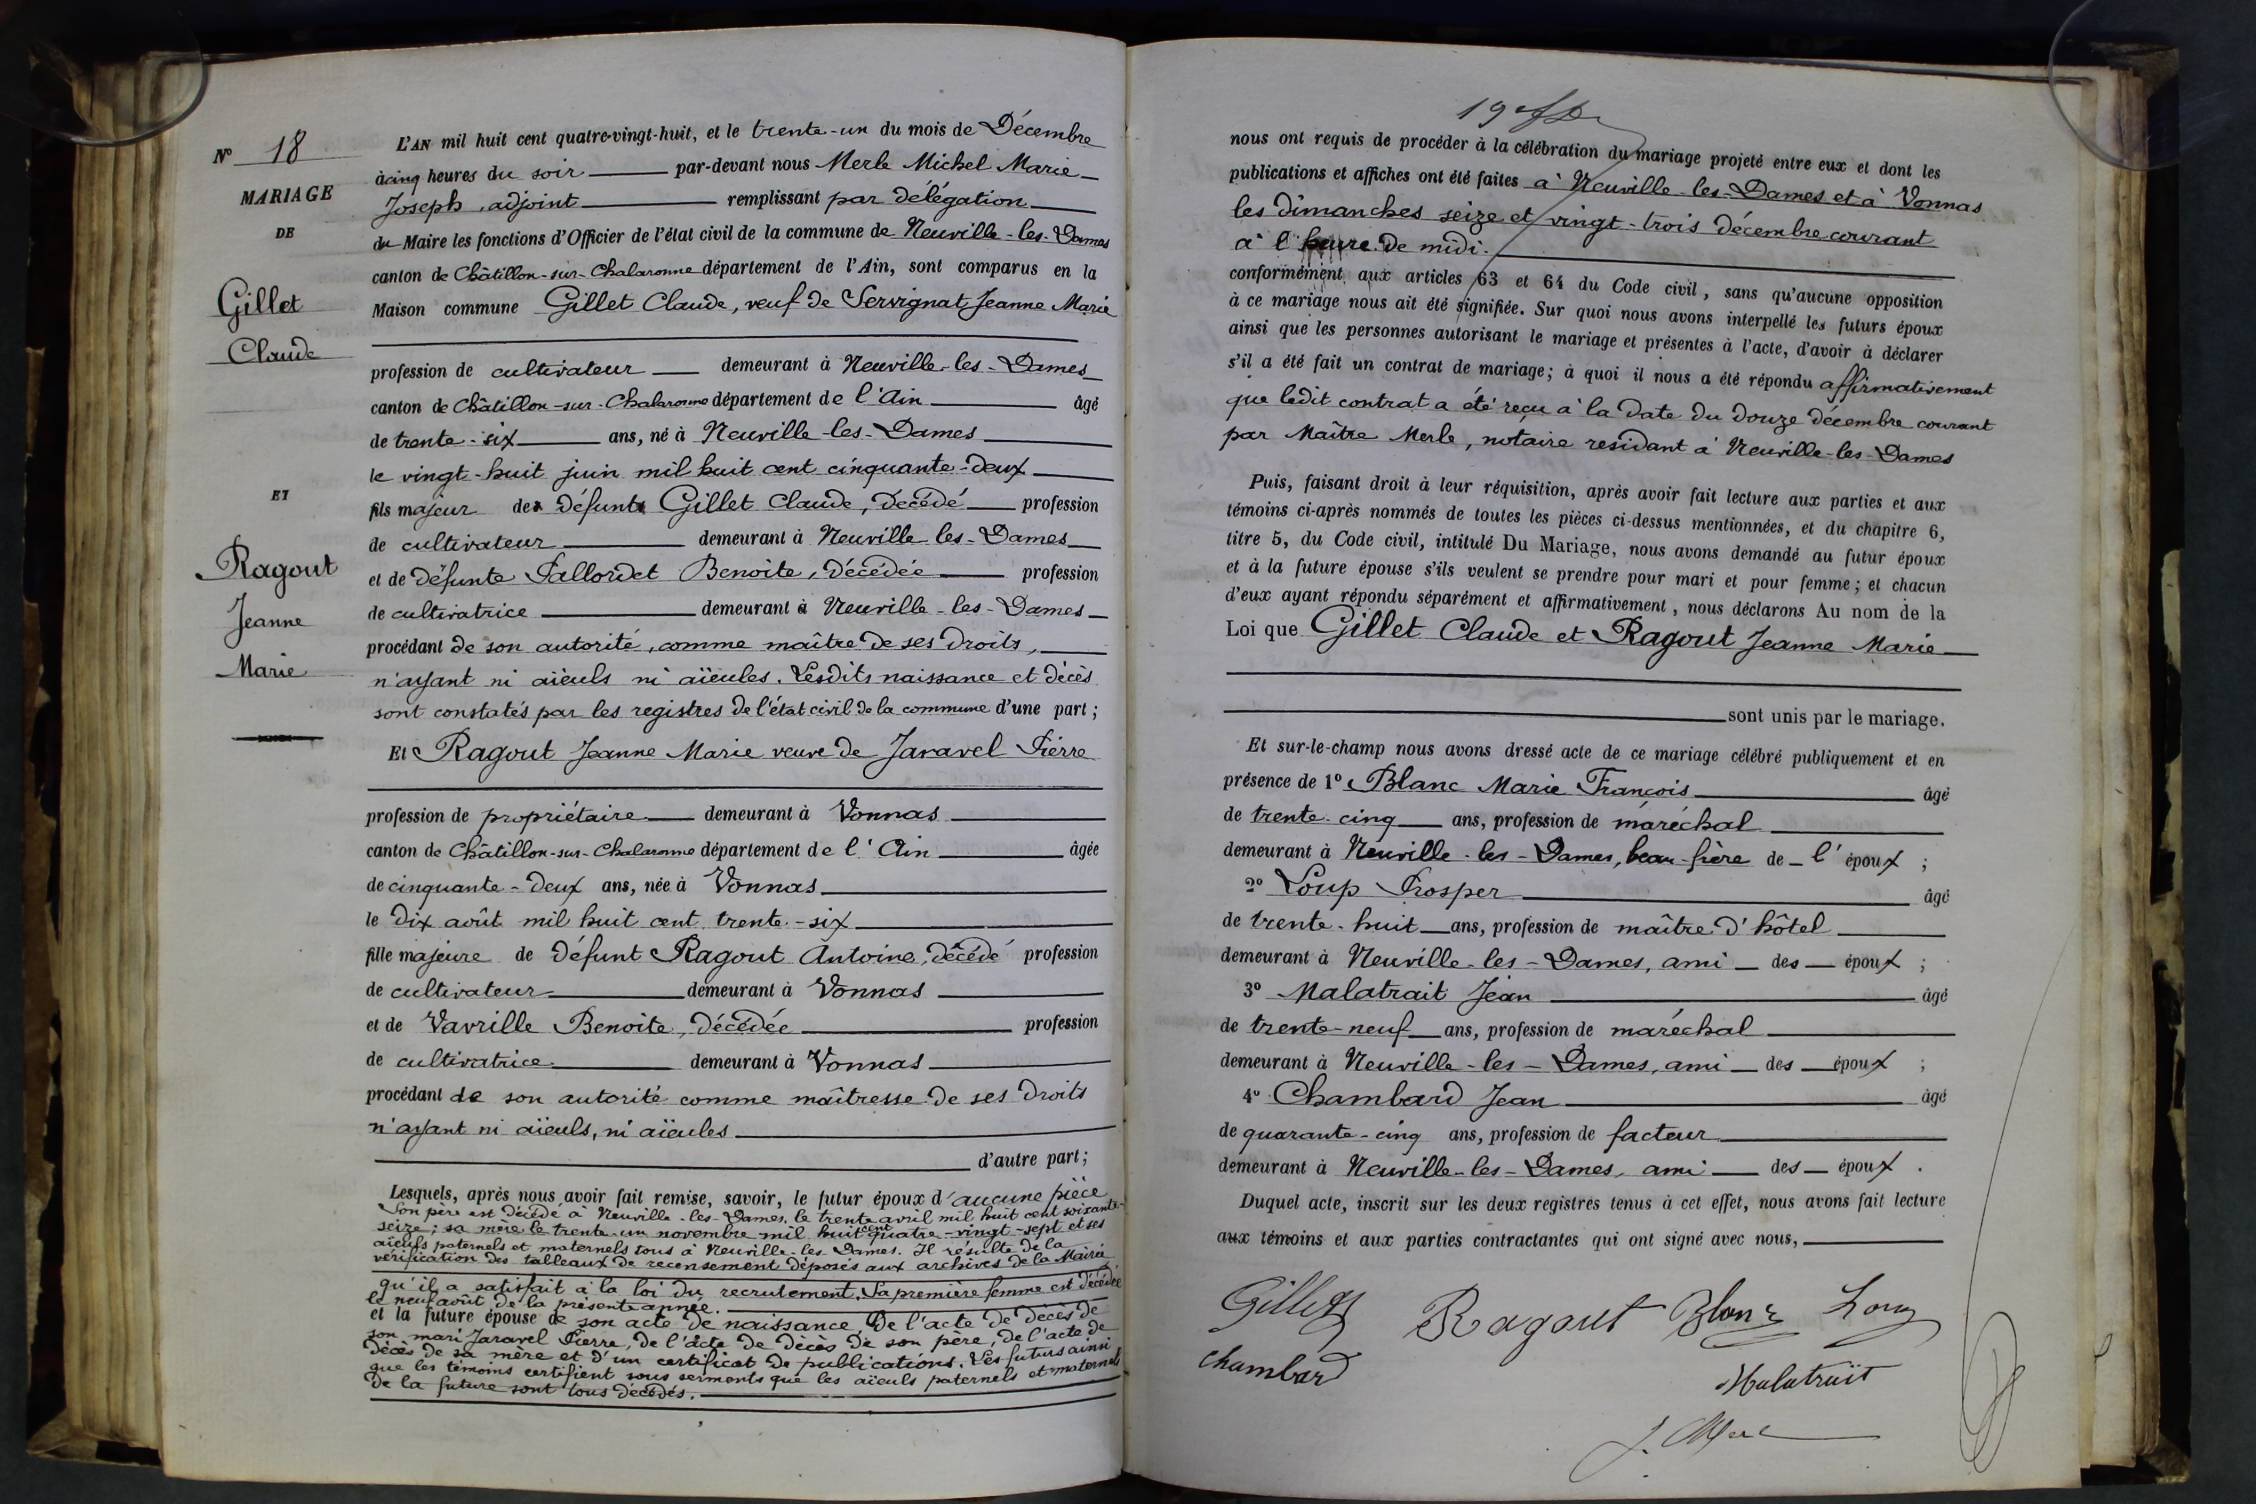 N° 18
MARIAGE
DE
Gillet
Claude
ET
Ragout
Jeanne
Marie
L'AN mil huit cent quatre-vingt-huit, et le trente-un du mois de Décembre
à cinq heures du soir par-devant nous Merle Michel Marie
Joseph, adjoint remplissant par délégation
du Maire les fonctions d'Officier de l'état civil de la commune de Neuville-les-Dames
canton de Châtillon-sur-Chalaronne département de l'Ain, sont comparus en la
Maison commune Gillet Claude, veuf de Servignat Jeanne Marie
profession de cultivateur demeurant à Neuville-les-Dames
canton de Châtillon-sur-Chalaronne département de l'Ain âgé
de trente-six ans, né à Neuville-les-Dames
le vingt-huit juin mil huit cent cinquante-deux
fils majeur de défunt Gillet Claude, décédé profession
de cultivateur demeurant à Neuville-les-Dames
et de défunte Pallordet Benoite, décédée profession
de cultivatrice demeurant à Neuville-les-Dames
procédant de son autorité, comme maître de ses droits,
n'ayant ni aïeuls ni aïeules. Lesdits naissance et décès
sont constatés par les registres de l'état civil de la commune d'une part;
Et Ragout Jeanne Marie veuve de Javavel Pierre
profession de propriétaire demeurant à Vonnas
canton de Châtillon-sur-Chalaronne département de l'Ain âgée
de cinquante-deux ans, née à Vonnas
le dix août mil huit cent trente-six
fille majeure de défunt Ragout Antoine, décédé profession
de cultivateur demeurant à Vonnas
et de Vavrille Benoite, décédée profession
de cultivatrice demeurant à Vonnas
procédant de son autorité comme maîtresse de ses droits
n'ayant ni aïeuls, ni aïeules
d'autre part;
Lesquels, après nous avoir fait remise, savoir, le futur époux d'aucune pièce
Son père est décédé à Neuville-les-Dames, le trente avril mil huit cent soixante-
seize; sa mère le trente-un novembre mil huit cent quatre-vingt-sept et ses
aïeuls paternels et maternels tous à Neuville-les-Dames. Il résulte de la
vérification des tableaux de recensement déposés aux archives de la Mairie
qu'il a satisfait à la loi du recrutement. Sa première femme est décédée
le neuf août de la présente année.
et la future épouse de son acte de naissance De l'acte de décès de
son mari Javavel Pierre, de l'acte de décès de son père, de l'acte de
décès de sa mère et d'un certificat de publications. Les futurs ainsi
que les témoins certifient sous serments que les aïeuls paternels et maternels
de la future sont tous décédés.
19e
nous ont requis de procéder à la célébration du mariage projeté entre eux et dont les
publications et affiches ont été faites à Neuville-les-Dames et à Vonnas
les dimanches seize et vingt-trois décembre courant
à l'heure de midi.
conformément aux articles 63 et 64 du Code civil, sans qu'aucune opposition
à ce mariage nous ait été signifiée. Sur quoi nous avons interpellé les futurs époux
ainsi que les personnes autorisant le mariage et présentes à l'acte, d'avoir à déclarer
s'il a été fait un contrat de mariage; à quoi il nous a été répondu affirmativement
que ledit contrat a été reçu à la date du douze décembre courant
par Maître Merle, notaire résidant à Neuville-les-Dames
Puis, faisant droit à leur réquisition, après avoir fait lecture aux parties et aux
témoins ci-après nommés de toutes les pièces ci-dessus mentionnées, et du chapitre 6,
titre 5, du Code civil, intitulé Du Mariage, nous avons demandé au futur époux
et à la future épouse s'ils veulent se prendre pour mari et pour femme; et chacun
d'eux ayant répondu séparément et affirmativement, nous déclarons Au nom de la
Loi que Gillet Claude et Ragout Jeanne Marie
sont unis par le mariage.
Et sur-le-champ nous avons dressé acte de ce mariage célébré publiquement et en
présence de 1° Blanc Marie François âgé
de trente-cinq ans, profession de maréchal
demeurant à Neuville-les-Dames, beau-frère de l'époux;
2° Loup Prosper âgé
de trente-huit ans, profession de maître d'hôtel
demeurant à Neuville-les-Dames, ami des époux;
3° Malatrait Jean âgé
de trente-neuf ans, profession de maréchal
demeurant à Neuville-les-Dames, ami des époux;
4° Chambard Jean âgé
de quarante-cinq ans, profession de facteur
demeurant à Neuville-les-Dames, ami des époux.
Duquel acte, inscrit sur les deux registres tenus à cet effet, nous avons fait lecture
aux témoins et aux parties contractantes qui ont signé avec nous,
Gillet Ragout Blanc Loup
Chambard Malatrait
J. Merle